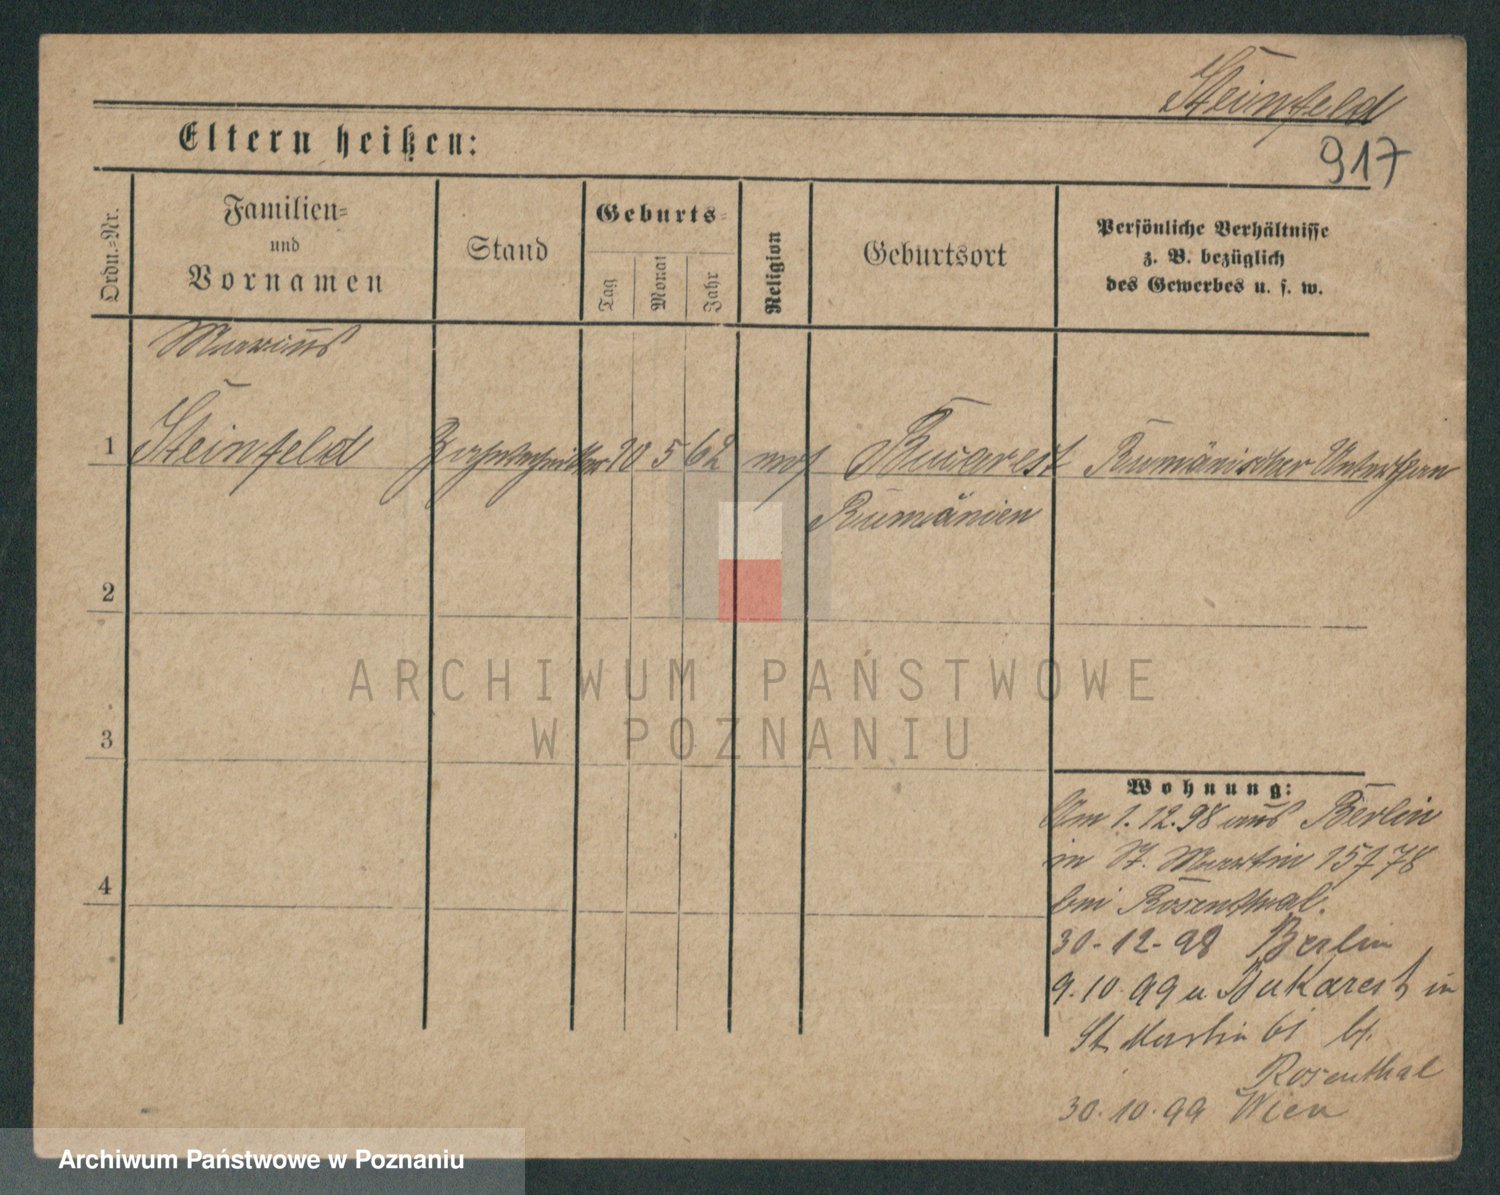 Steinfeld
917
Eltern heißen:
Ordn.=Nr.
Familien=
und
Vornamen
Stand
Geburts=
Tag
Monat
Jahr
Religion
Geburtsort
Persönliche Verhältnisse
z. B. bezüglich
des Gewerbes u. s. w.
Marcus
1 Steinfeld 5 62 mos Bucarest Rumänischer Unterthan
Rumänien
2
3
4
Wohnung:
Am 1.12.98 aus Berlin
in St. Martin
bei Rosenthal.
30-12-98 Berlin
9.10.99 v Bukarest in
St. Martin 61 b.
Rosenthal
30.10.99 Wien
ARCHIWUM PAŃSTWOWE
W POZNANIU
Archiwum Państwowe w Poznaniu